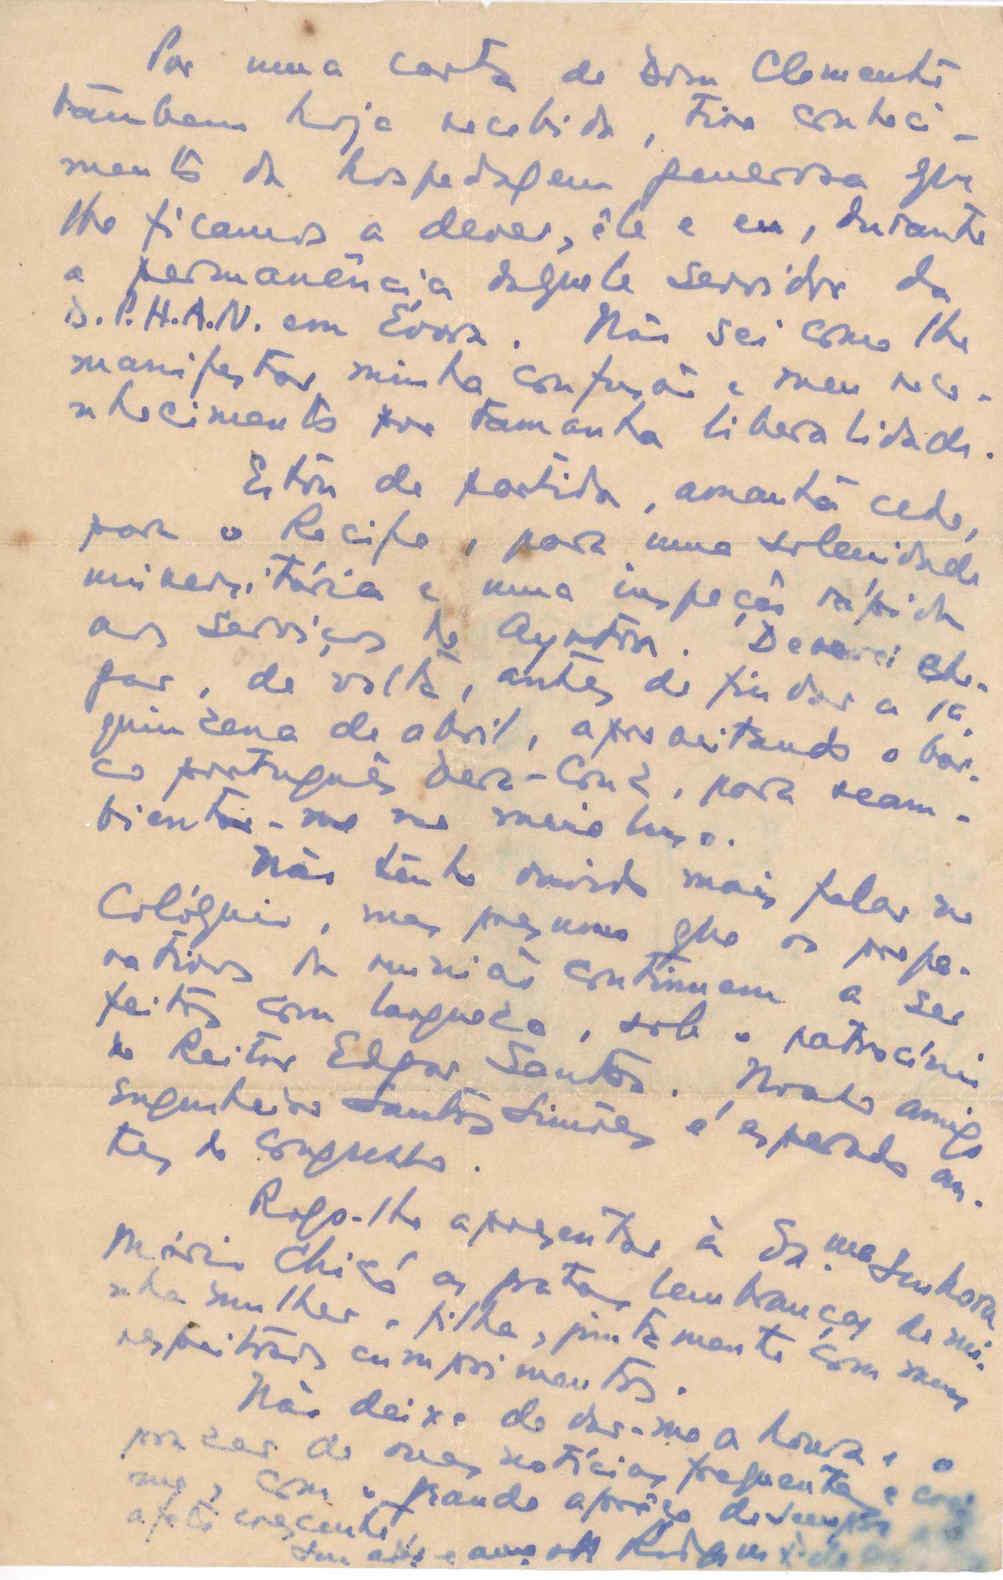 Por uma carta de Dom Clemente
tambem hoje recebida, tive conheci-
mento da hospedagem generosa que
lhe ficamos a dever, êle e eu, durante
a permanência daquele servidor da
D.P.H.A.N. em Évora. Não sei como lhe
manifestar minha confusão e meu reco-
nhecimento por tamanha liberalidade.
Estou de partida, amanhã cedo,
para o Recife, para uma solenidade
universitária e uma inspeção rápida
aos serviços do Ayrton. Deverei che-
gar, de volta, antes de findar a 1ª
quinzena de abril, aproveitando o bar-
co português Vera-Cruz, para ream-
bientar-me no meio luso.
Não tenho ouvido mais falar no
Colóquio, mas presumo que os prepa-
rativos da reunião continuem a ser
feitos com largueza, sob o patrocínio
do Reitor Edgar Santos. Nosso amigo
Engenheiro Santos Simões é esperado an-
tes do Congresso.
Rogo-lhe apresentar à Ex.ma Senhora
Mário Chicó as gratas lembranças de mi-
nha mulher e filha, juntamente com meus
respeitosos cumprimentos.
Não deixe de dar-me a honra e o
prazer de suas notícias frequentes e
me, com o grande aprêço de sempre
afeto crescente,
Seu adº e amº Rodrigo